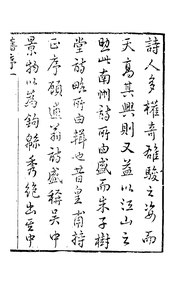 詩人多權奇雄駿之姿而
天高其興則又益以江山之
照此南州詩所由盛而朱子樹
堂詩略所由輯也昔皇甫持
正序顧逋翁詩盛稱吳中
景物以為鉤緜秀絕出其中